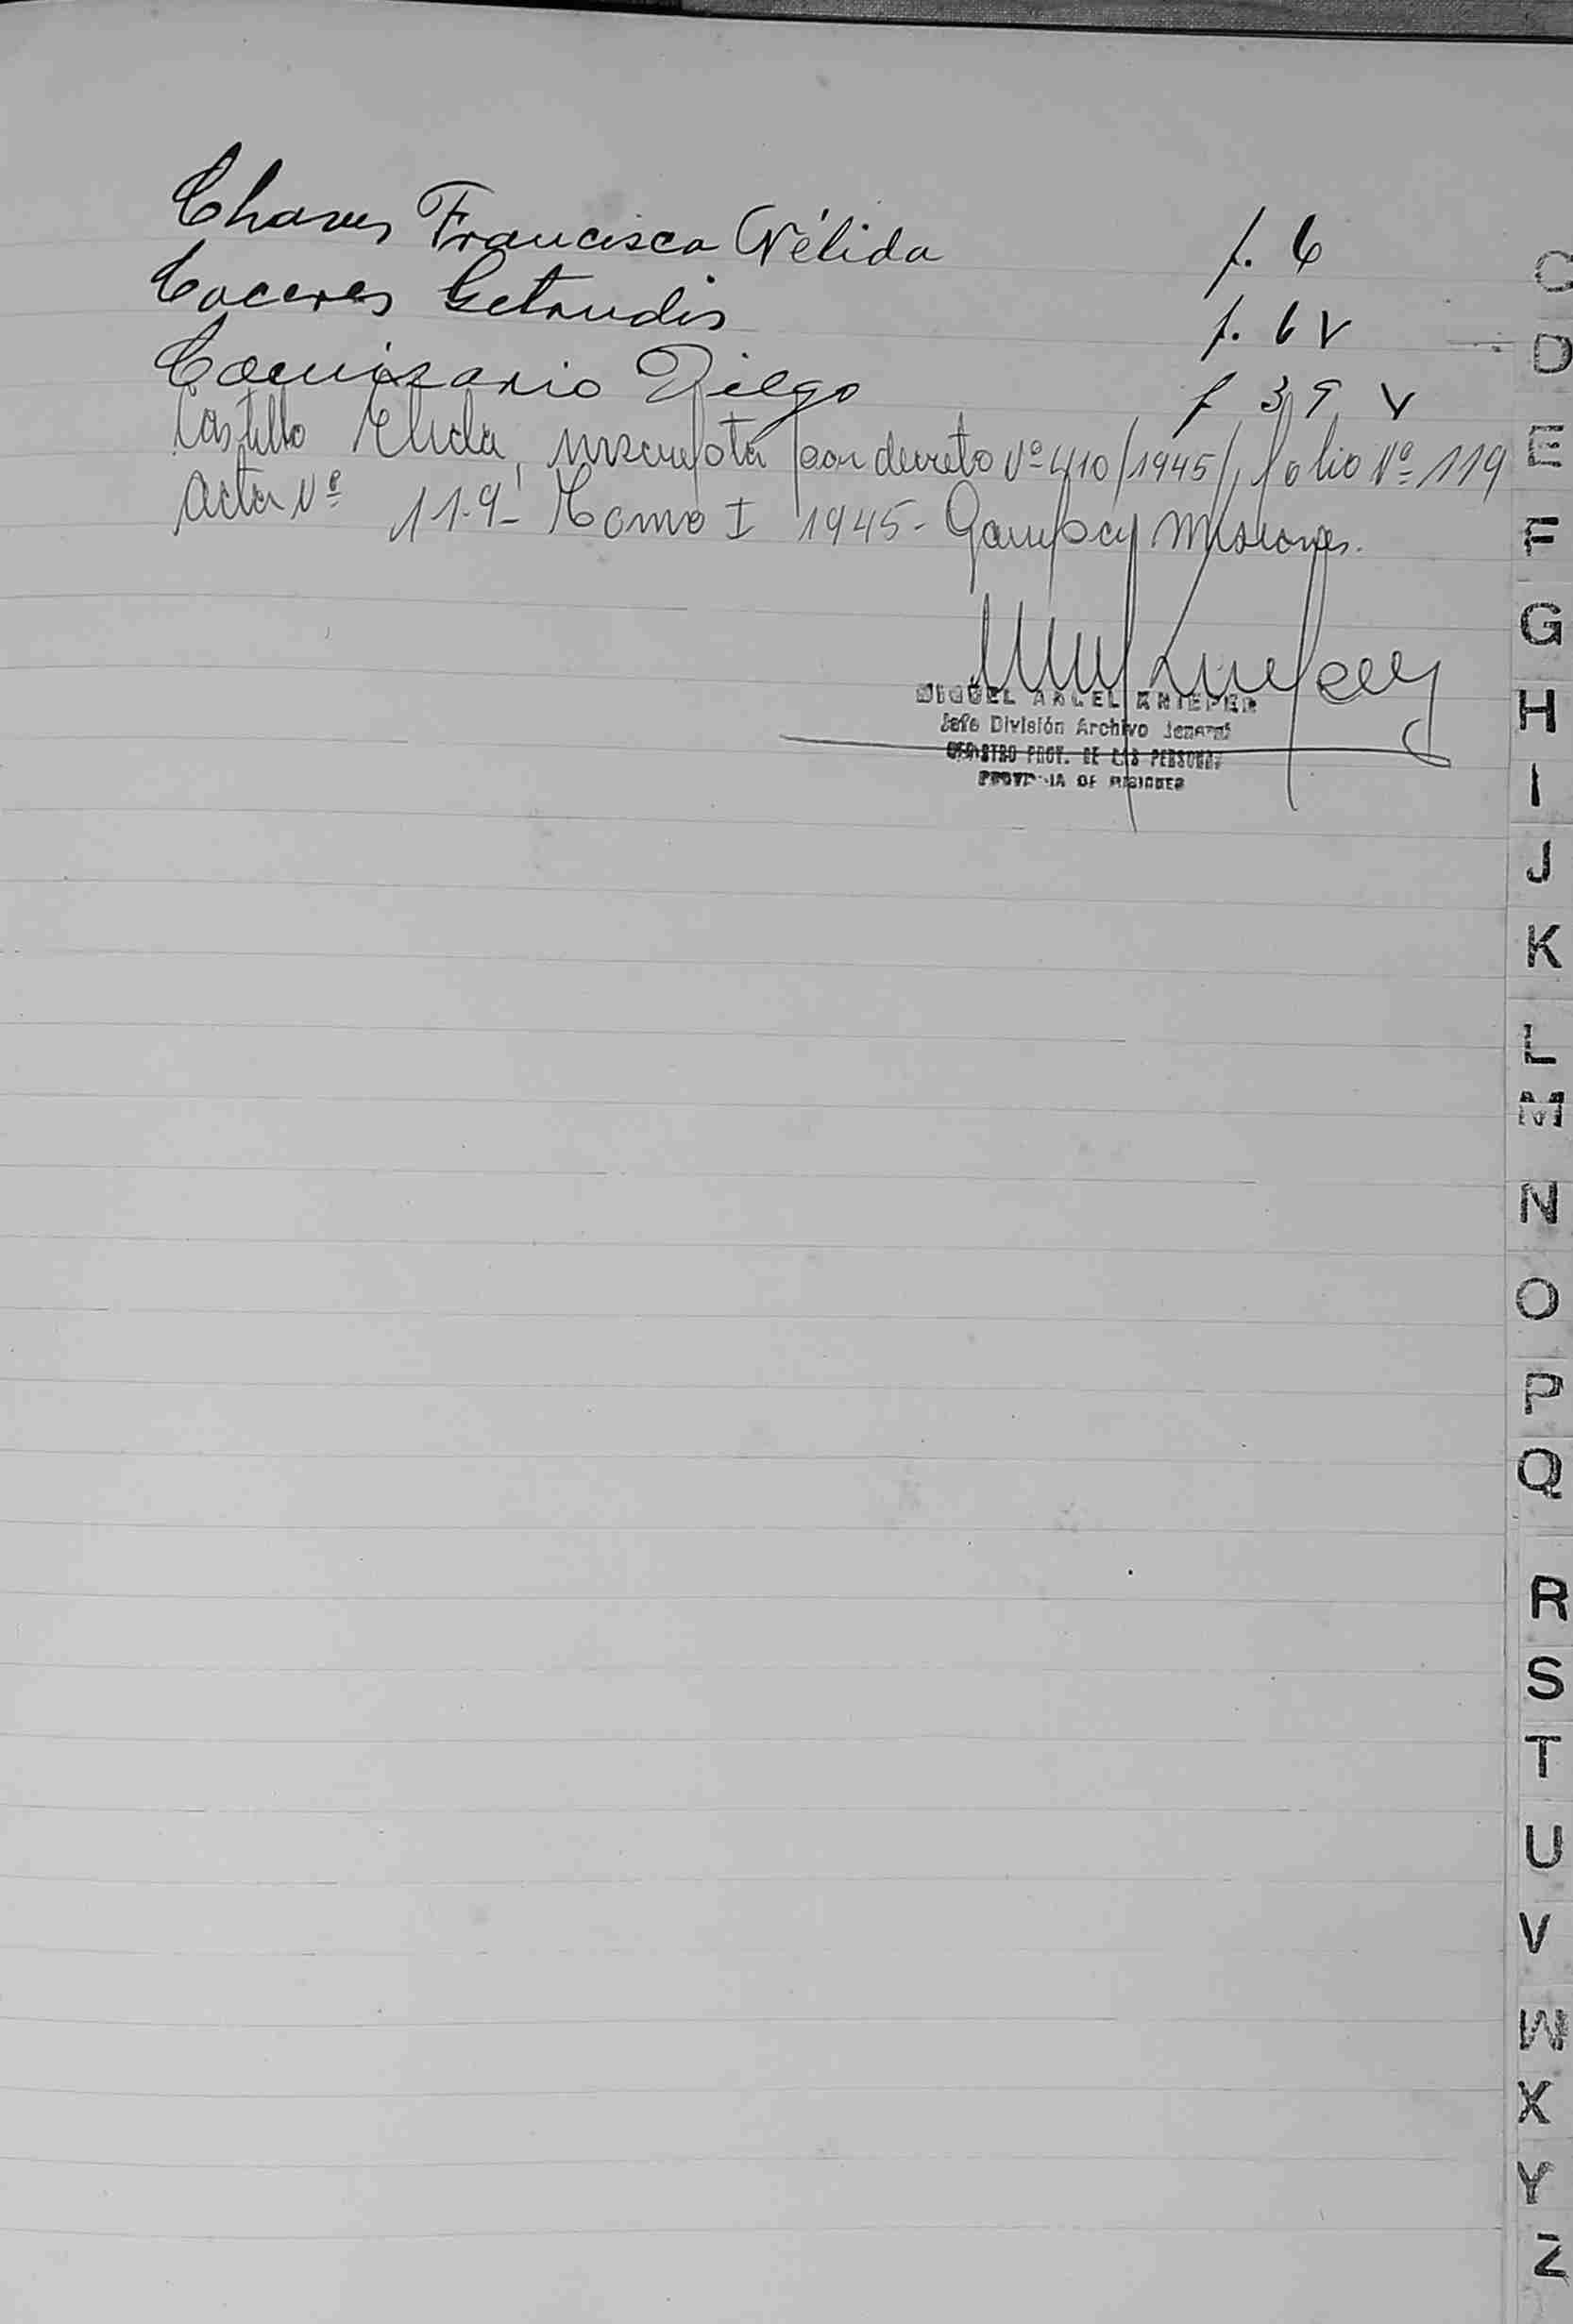 Chaves Francisca Nélida f. 6
Caceres Getrudis f. 6 v
Comisario Diego f 39 v
Castillo Elida, inscripta por decreto Nº 410/1945/, folio Nº 119
acta Nº 119- Tomo I 1945- Garupay Misiones.
MIGUEL ANGEL KNIEPER
Jefe División Archivo General
REGISTRO PROV. DE LAS PERSONAS
PROVINCIA DE MISIONES
C
D
E
F
G
H
I
J
K
L
M
N
O
P
Q
R
S
T
U
V
W
X
Y
Z